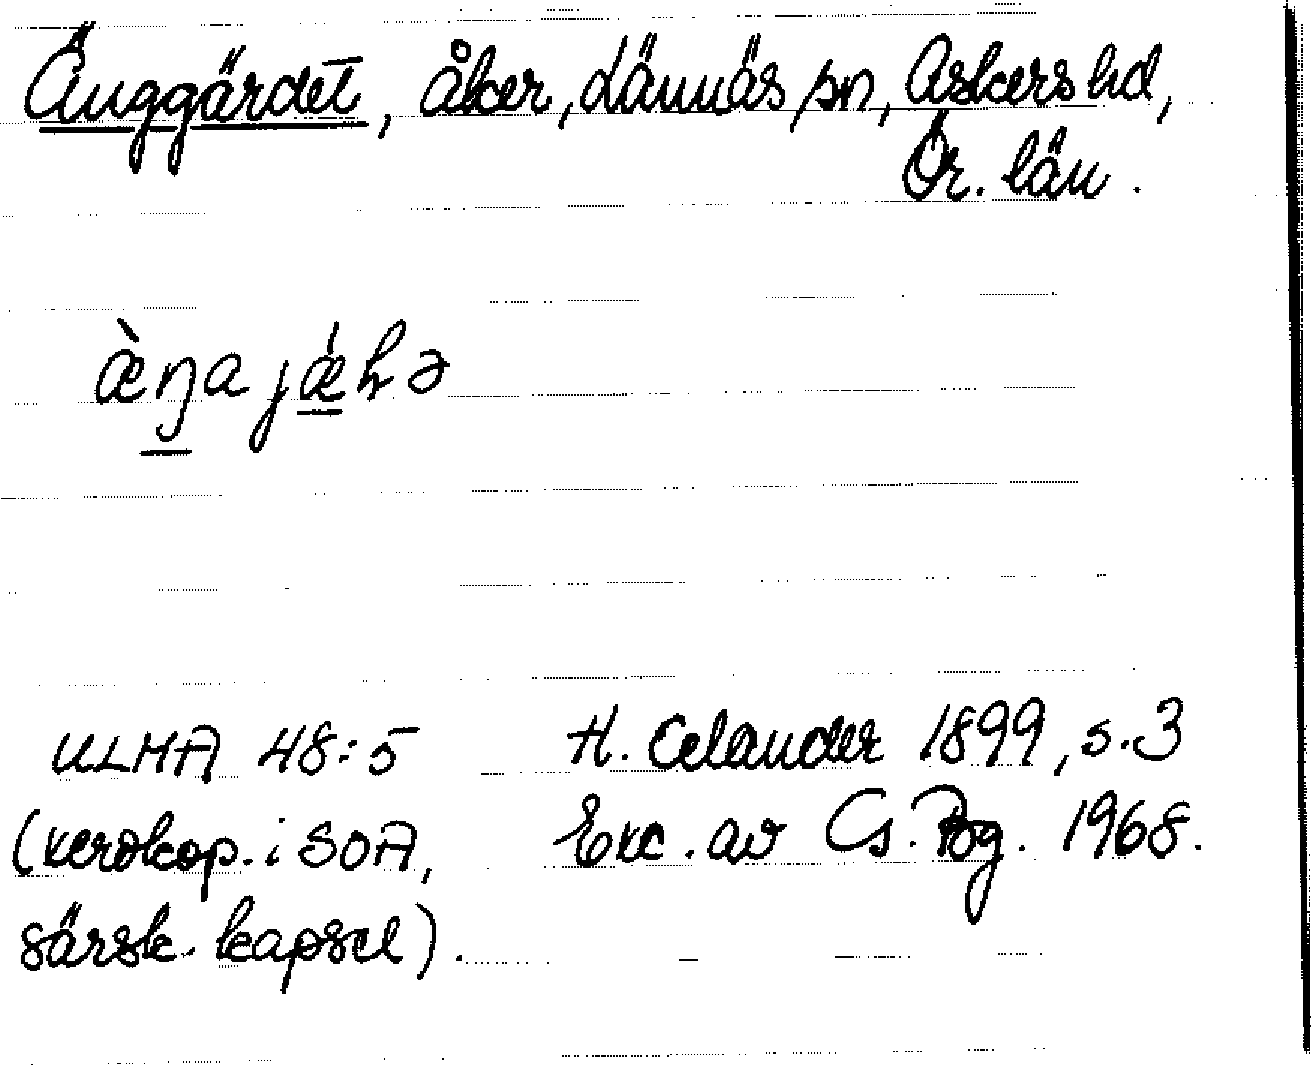 Änggärdet, åker, Lännäs sn, Askers hd,
Ör. län.
æ̀ŋa jǽɦə
ULMA 48:5 H. Celander 1899, s. 3
(xerokop. i SOA, Exc. av Cs. Bg. 1968.
särsk. kapsel).